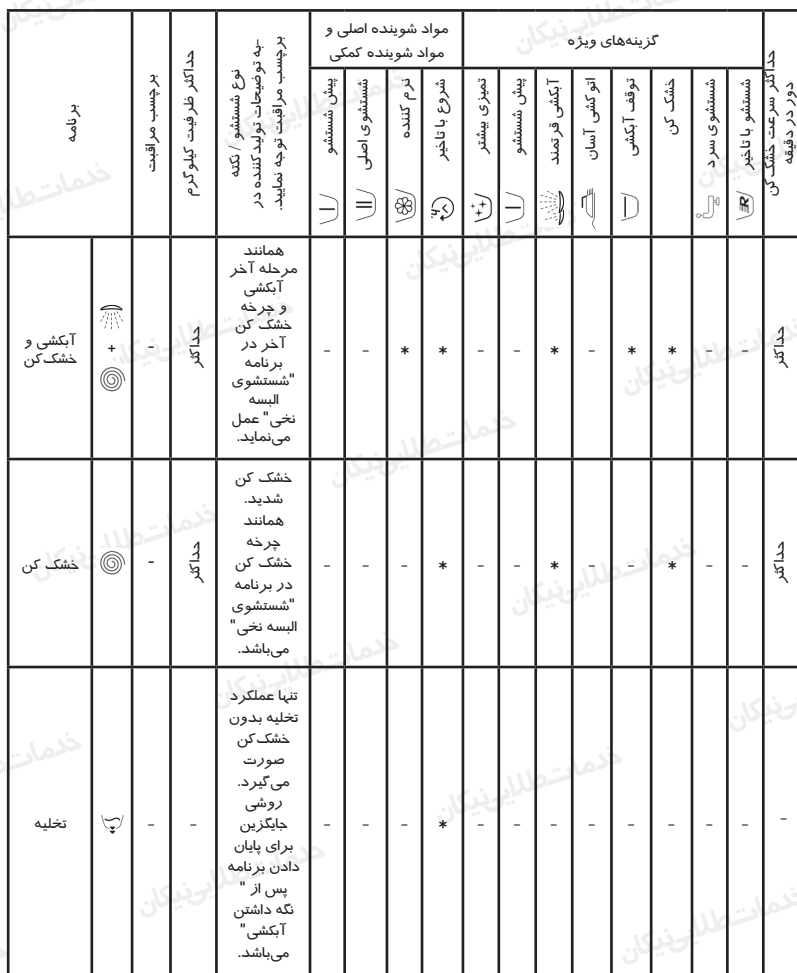 برنامه
برچسب مراقبت
حداکثر ظرفیت کیلوگرم
نوع شستشو / نکته
-به توضیحات تولیدکننده در
برچسب مراقبت توجه نمایید.
مواد شوینده اصلی و
مواد شوینده کمکی
پیش شستشو
شستشوی اصلی
نرم کننده
گزینه‌های ویژه
شروع با تاخیر
تمیزی بیشتر
پیش شستشو
آبکشی قرتمند
اتو کشی آسان
توقف آبکشی
خشک کن
شستشوی سرد
شستشو با تاخیر
حداکثر سرعت خشک کن
دور در دقیقه
آبکشی و
خشک‌کن
+
-
حداکثر
همانند
مرحله آخر
آبکشی
و چرخه
خشک کن
آخر در
برنامه
"شستشوی
البسه
نخی" عمل
می‌نماید.
- - * * - - * - * * - -
حداکثر
خشک کن
-
حداکثر
خشک کن
شدید.
همانند
چرخه
خشک کن
در برنامه
"شستشوی
البسه نخی"
می‌باشد.
- - - * - - * - - * - -
حداکثر
تخلیه
- -
تنها عملکرد
تخلیه بدون
خشک‌کن
صورت
می‌گیرد.
روشی
جایگزین
برای پایان
دادن برنامه
پس از "
نگه داشتن
آبکشی"
می‌باشد.
- - - * - - - - - - - -
-
خدمات‌طلایی‌نیکان